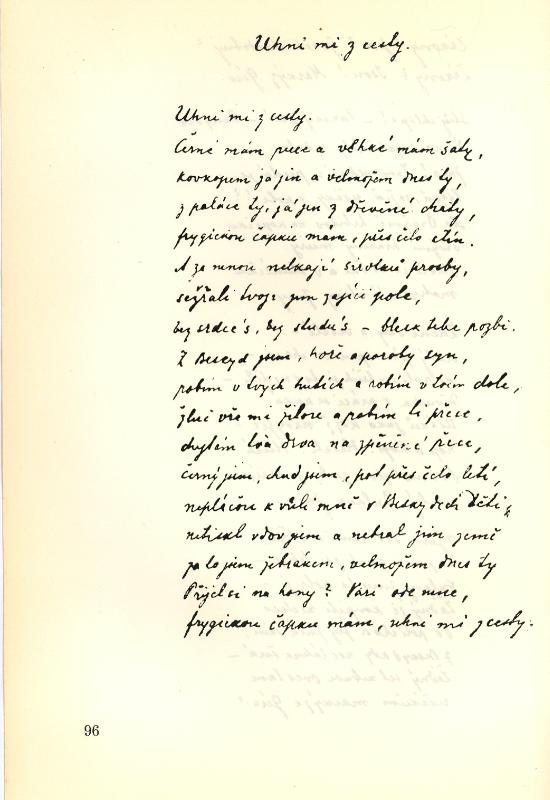 Uhni mi z cesty.
Uhni mi z cesty.
Černé mám ruce a vlhké mám šaty,
kovkopem já jin a velmožem dnes ty,
z paláce ty, já jen z dřevěné chaty,
frygickou čapku mám, přes čelo stín.
A za mnou nelkají sirotků prosby,
sežrali tvoje jim zajíci pole,
bez srdce's, bez studu's – blesk tebe pozbi.
Z Beskyd jsem, hoře a poroby syn,
robím v tvých hutích a robím v tvém dole,
žluč vře mi v žilore a robím ti přece,
chytám tvá drva na zpěněné řece,
černý jsem, chud jsem, pot přes čelo letí,
nepláčou k vůli mně v Beskydech děti;
netiskl vdov jsem a nebral jim země
za to jsem žebrákem, velmožem dnes ty
Přijel si na hony? Vari ode mne,
frygickou čapku mám, uhni mi z cesty.
96